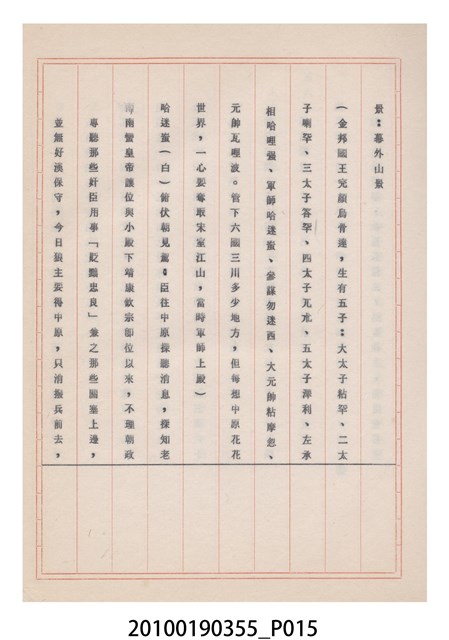 景：幕外山景
（金邦國王完顏烏骨達，生有五子：大太子粘罕、二太
子喇罕、三太子答罕、四太子兀朮、五太子澤利、左承
相哈哩強、軍師哈迷蚩、參謀勿迷西、大元帥粘摩忽、
元帥瓦哩波。管下六國三川多少地方，但每想中原花花
世界，一心要奪取宋室江山，當時軍師上殿）
哈迷蚩（白）俯伏朝見駕。臣往中原探聽消息，探知老
南蠻皇帝讓位與小殿下靖康欽宗即位以來，不理朝政
專聽那些奸臣用事「貶黜忠良」兼之那些關塞上邊，
並無好漢保守，今日狼主要得中原，只消撥兵前去，
20100190355_P015